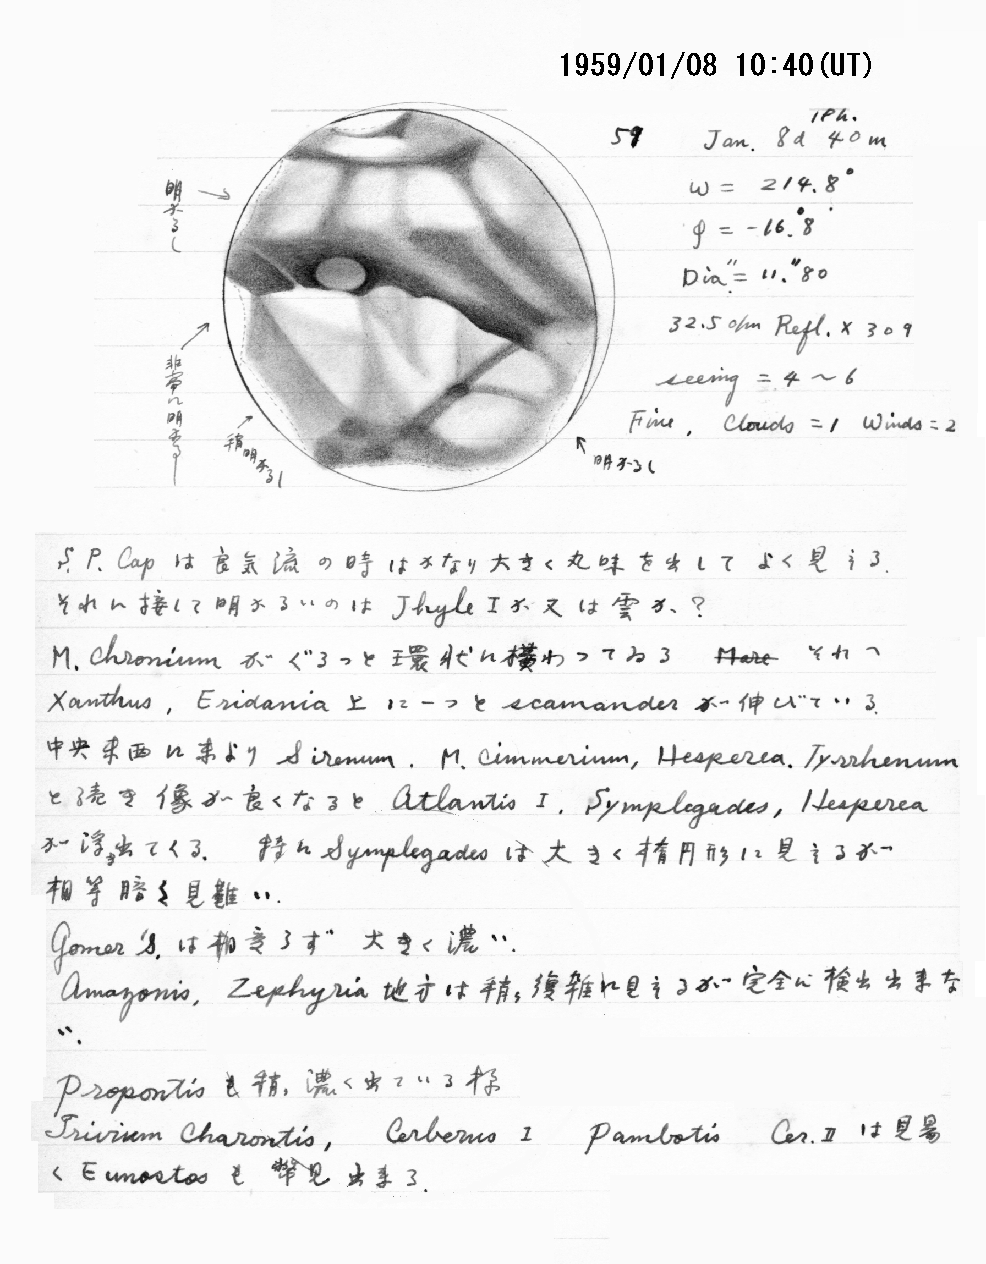 1959/01/08 10:40(UT)
59 Jan. 8d 40m
ω = 214.8°
φ = -16.°8
Dia" = 11."80
32.5 c/m Refl. × 309
seeing = 4 ~ 6
Fine, Clouds = 1 Winds = 2
明かるし
非常に明るし
稍明かるし
明かるし
S. P. Cap は良気流の時はかなり大きく丸味を出してよく見える.
それに接して明かるいのは Thyle I か又は雲か、?
M. Chronium がぐるっと環状に横わってゐる それへ
Xanthus, Eridania 上に一つと scamander が伸びている.
中央東西に東より Sirenum. M. Cimmerium, Hesperea. Tyrrhenum
と続き像が良くなると Atlantis I. Symplegades, Hesperea
が浮き出てくる. 特に Symplegades は大きく楕円形に見えるが
相等暗く見難い.
Gomer S. は相変らず 大きく濃い.
Amazonis, Zephyria 地方は稍々復雑に見えるが完全に検出出来な
い.
Propontis も稍々濃く出ている様
Trivium Charontis, Cerberus I Pambotis Cer. II は見易
く Eunostos も 見出来る.